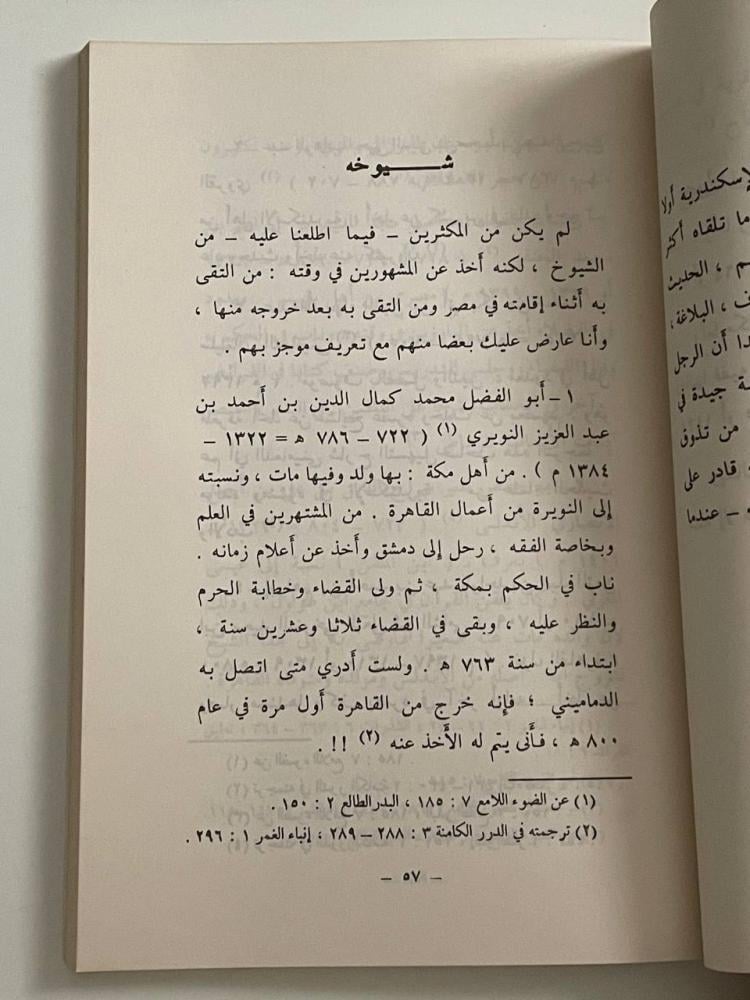 شيوخه
لم يكن من المكثرين – فيما اطلعنا عليه – من
الشيوخ ، لكنه أخذ عن المشهورين في وقته : من التقى
به أثناء إقامته في مصر ومن التقى به بعد خروجه منها ،
وأنا عارض عليك بعضا منهم مع تعريف موجز بهم .
١ – أبو الفضل محمد كمال الدين بن أحمد بن
عبد العزيز النويري (١) ( ٧٢٢ – ٧٨٦ ه = ١٣٢٢ –
١٣٨٤ م ) . من أهل مكة : بها ولد وفيها مات ، ونسبته
إلى النويرة من أعمال القاهرة . من المشتهرين في العلم
وبخاصة الفقه ، رحل إلى دمشق وأخذ عن أعلام زمانه .
ناب في الحكم بمكة ، ثم ولى القضاء وخطابة الحرم
والنظر عليه ، وبقى في القضاء ثلاثا وعشرين سنة ،
ابتداء من سنة ٧٦٣ ه . ولست أدري متى اتصل به
الدماميني ؛ فإنه خرج من القاهرة أول مرة في عام
٨٠٠ ه ، فأنى يتم له الأخذ عنه (٢) !! .
(١) عن الضوء اللامع ٧ : ١٨٥ ، البدر الطالع ٢ : ١٥٠ .
(٢) ترجمته في الدرر الكامنة ٣ : ٢٨٨ – ٢٨٩ ، إنباء الغمر ١ : ٢٩٦ .
– ٥٧ –
لإسكندرية أولا
ما تلقاه أكثر
م ، الحديث
ف ، البلاغة ،
دا أن الرجل
ة جيدة في
من تذوق
قادر على
– عندما